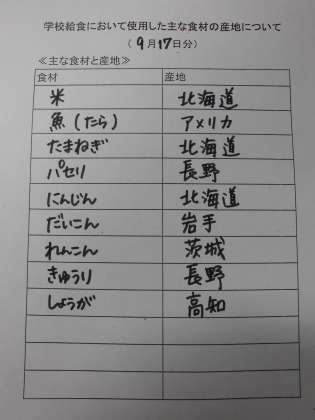 学校給食において使用した主な食材の産地について
（9月17日分）
≪主な食材と産地≫
食材 産地
米 北海道
魚（たら） アメリカ
たまねぎ 北海道
パセリ 長野
にんじん 北海道
だいこん 岩手
れんこん 茨城
きゅうり 長野
しょうが 高知